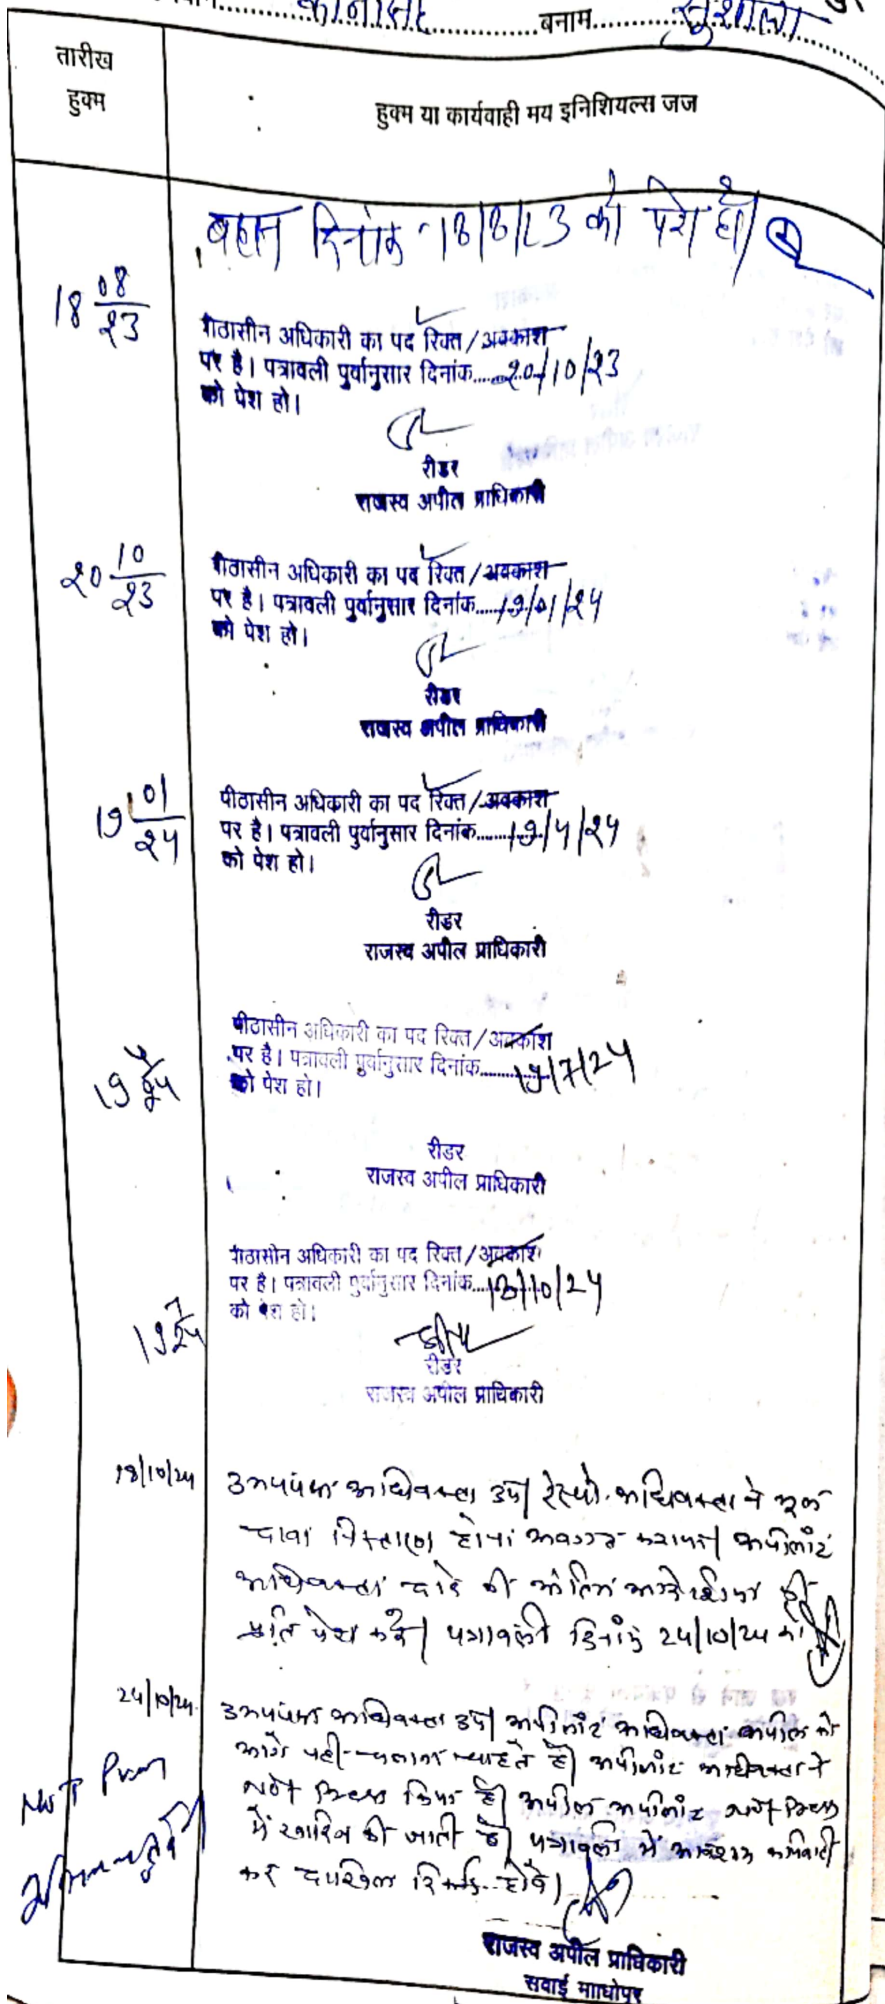 बनाम
तारीख
हुक्म
हुक्म या कार्यवाही मय इनिशियल्स जज
बहस दिनांक 18/8/23 को पेश हो।
18 08/23
पीठासीन अधिकारी का पद रिक्त/अवकाश
पर है। पत्रावली पुर्वानुसार दिनांक......20/10/23
को पेश हो।
रीडर
राजस्व अपील प्राधिकारी
20 10/23
पीठासीन अधिकारी का पद रिक्त/अवकाश
पर है। पत्रावली पुर्वानुसार दिनांक......19/01/24
को पेश हो।
रीडर
राजस्व अपील प्राधिकारी
19 01/24
पीठासीन अधिकारी का पद रिक्त/अवकाश
पर है। पत्रावली पुर्वानुसार दिनांक......19/4/24
को पेश हो।
रीडर
राजस्व अपील प्राधिकारी
19 4/24
पीठासीन अधिकारी का पद रिक्त/अवकाश
पर है। पत्रावली पुर्वानुसार दिनांक......19/7/24
को पेश हो।
रीडर
राजस्व अपील प्राधिकारी
पीठासीन अधिकारी का पद रिक्त/अवकाश
पर है। पत्रावली पुर्वानुसार दिनांक......18/10/24
को पेश हो।
19 7/24
रीडर
राजस्व अपील प्राधिकारी
18/10/24 उभयपक्ष अधिवक्ता उप। रेस्पो. अधिवक्ता ने मूल
दावा निस्तारण होना अवगत कराया। अपीलांट
अधिवक्ता वाद की अंतिम आदेशिका की
प्रति पेश करे। पत्रावली दिनांक 24/10/24 को
24/10/24 उभयपक्ष अधिवक्ता उप। अपीलांट अधिवक्ता अपील को
आगे नही चलाना चाहते है। अपीलांट अधिवक्ता ने
Not Press किया है। अपील अपीलांट Not Press
में खारिज की जाती है। पत्रावली में आवश्यक कार्यवाही
कर दाखिल रिकॉर्ड होवे।
Not Press
राजस्व अपील प्राधिकारी
सवाई माधोपुर